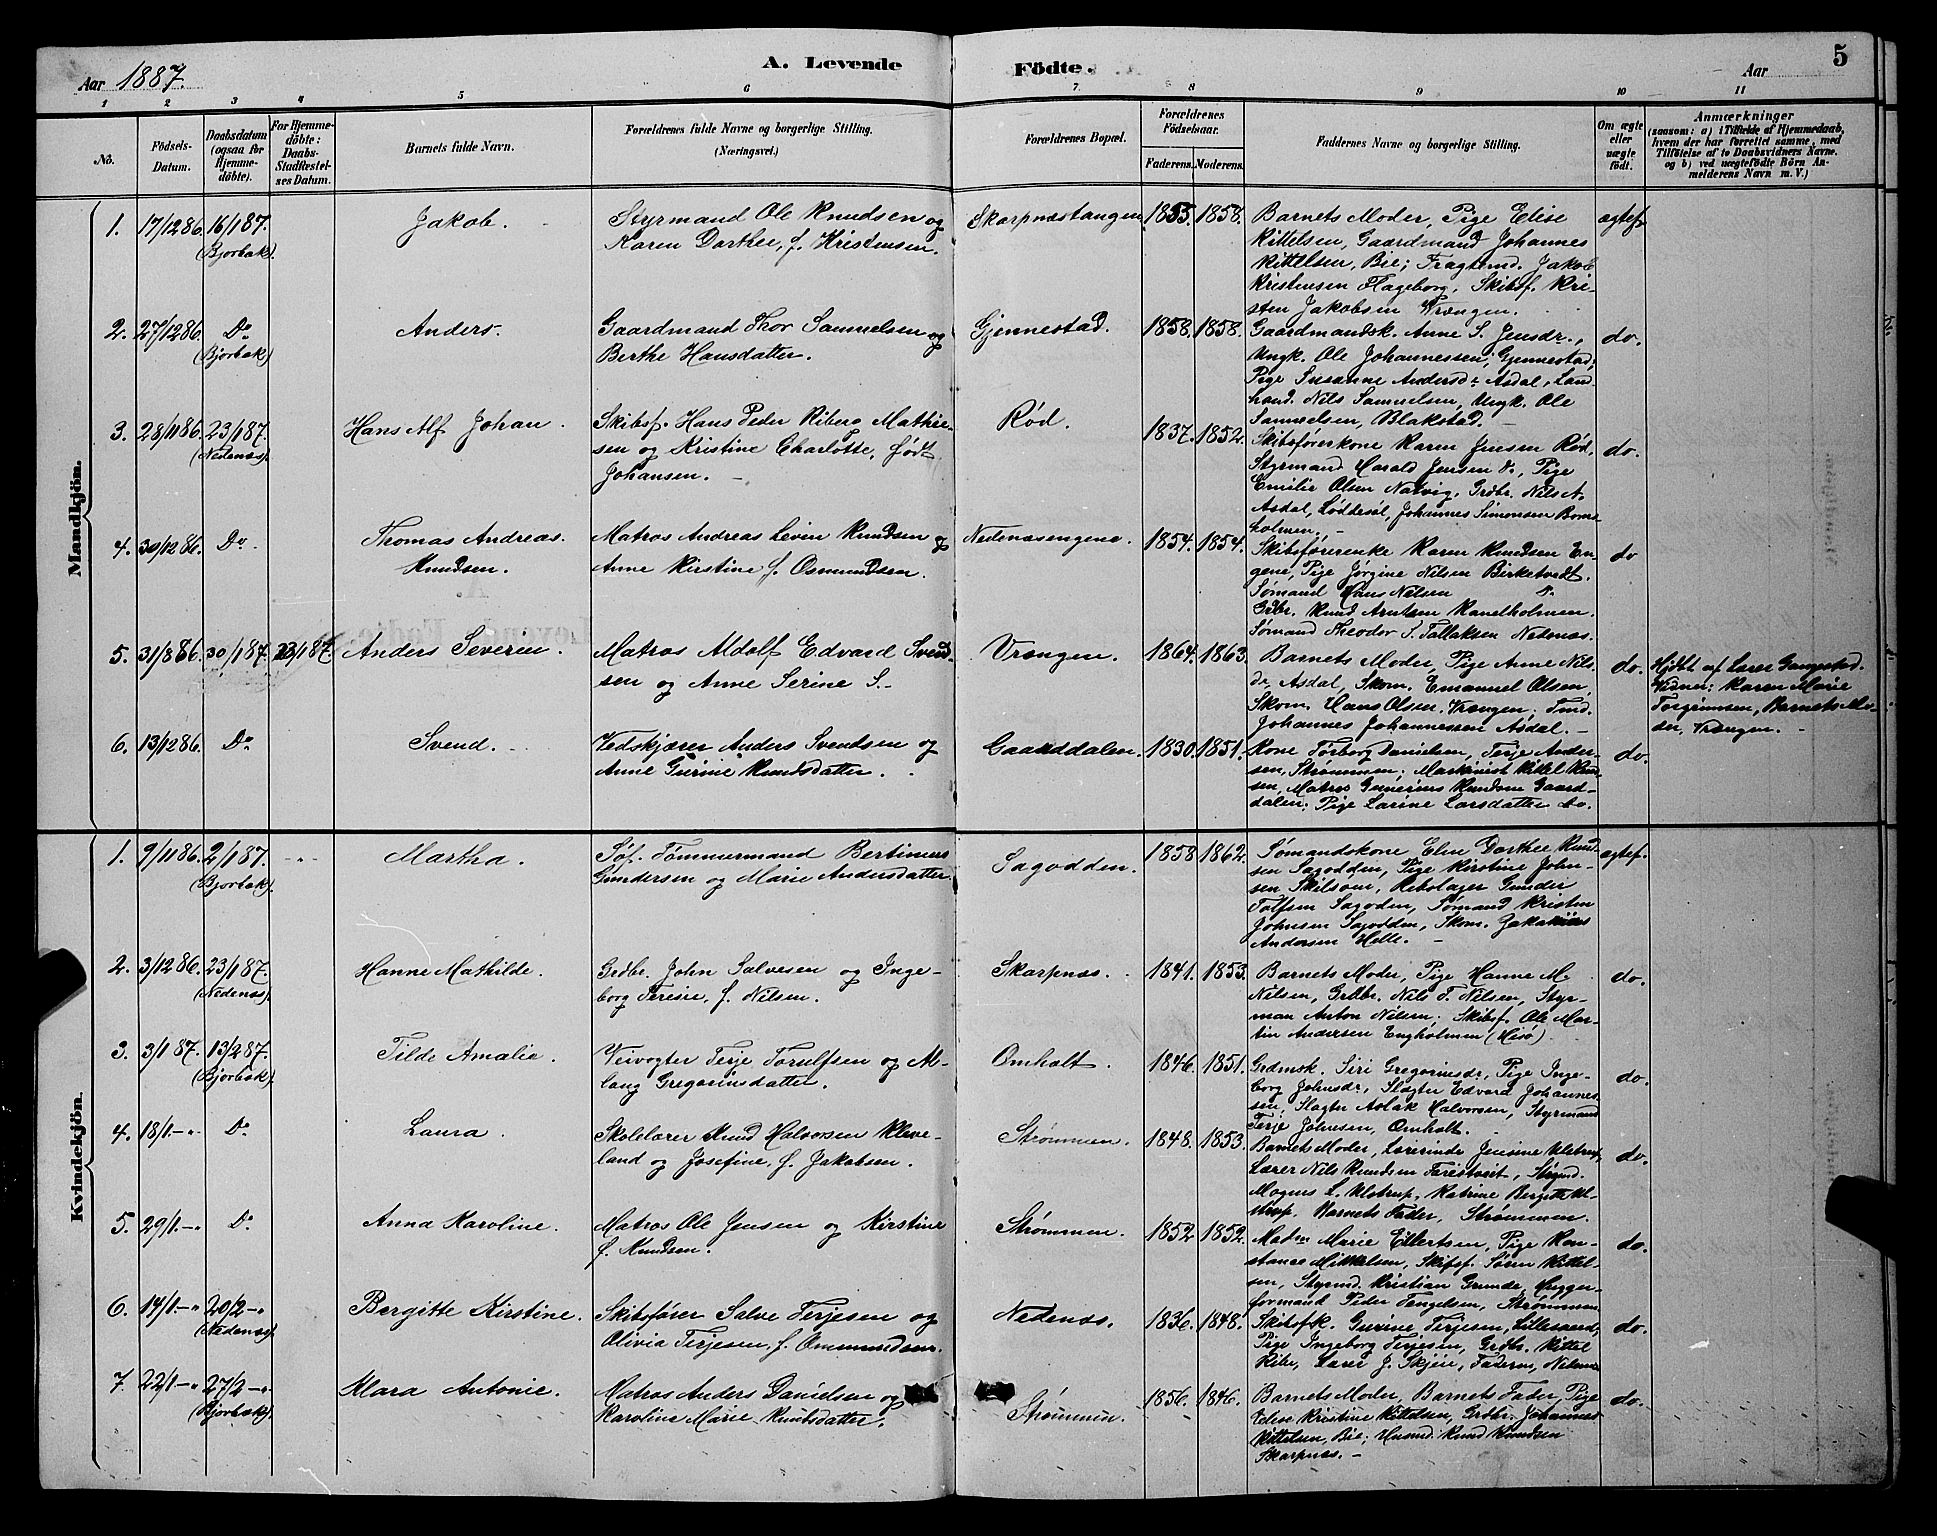 Aar 1887.
A. Levende
Födte.
Aar
5
1 2 3 4 5 6 7. 8 9 10 11
No.
Födsels-
Datum.
Daabsdatum
(ogsaa for
Hjemme-
döbte).
For Hjemme-
döbte:
Daabs-
Stadfæstel-
ses Datum.
Barnets fulde Navn.
Forældrenes fulde Navne og borgerlige Stilling.
(Næringsvei.)
Forældrenes Bopæl.
Forældrenes
Födselsaar.
Faderens. Moderens.
Faddernes Navne og borgerlige Stilling.
Om ægte
eller
uægte
födt.
Anmærkninger
(saasom: a) i Tilfælde af Hjemmedaab,
hvem der har forrettet samme, med
Tilföielse af to Daabsvidners Navne.
og b) ved uægtefödte Börn An-
melderens Navn m. V.)
Mandkjön.
1. 17/12 86. 16/1 87.
(Bjorbæk).
Jakob.
Styrmand Ole Knudsen og
Karen Dorthee, f. Kristensen.
Skarpnæstangen 1855. 1858.
Barnets Moder, Pige Elise
Kittelsen, Gaardmand Johannes
Kittelsen, Bie; Fragtemd. Jakob
Kristensen Flageborg, Skibsf. Kri-
sten Jakobsen Vrængen.
ægtef.
2. 27/12 86. Do
(Bjorbæk)
Anders.
Gaardmand Thor Samuelsen og
Berthe Hansdatter.
Gjennestad. 1858. 1858.
Gaardmandsk. Anne S. Jensdr.,
Ungk. Ole Johannessen, Gjennestad;
Pige Susanne Andersdr Asdal, Land-
hand. Nils Samuelsen, Ungk. Ole
Samuelsen, Blakstad.
do.
3. 28/11 86. 23/1 87.
(Nedenæs).
Hans Alf Johan.
Skibsf. Hans Peder Riberg Mathie-
sen og Kristine Charlotte, født
Johansen.
Rød. 1837. 1852.
Skibsførerkone Karen Jensen Rød,
Styrmand Harald Jensen do., Pige
Emilie Olsen Natvig, Grdbr. Nils A.
Asdal, Løddesøl, Johannes Simonsen Borns-
holmen,
do.
4. 30/12 86. Do
Thomas Andreas
Knudsen.
Matros Andreas Levin Knudsen og
Anne Kirstine f. Osmundsen.
Nedenæsengene. 1854. 1854.
Skibsførerenke Karen Knudsen En-
gene, Pige Jørgine Nilsen Birketvedt.
Sømand Hans Nilsen do.
Grdbr. Knud Arntsen Kanelholmen.
Sømand Theodor T. Tallaksen Nedenæs.
do
5. 31/8 86. 30/1 87. 23/1 87.
Anders Severin.
Matros Adolf Edvard Svend-
sen og Anne Serine S.
Vrængen. 1864. 1863.
Barnets Moder, Pige Anne Nils-
dr Asdal, Skom. Emanuel Olsen,
Skom. Hans Olsen, Vrængen; Tmd.
Johannes Johannessen Asdal.
do.
Hjdbt af Lærer Gangestad.
Vidner: Karen Marie
Torgrimsen, Barnets Mo-
der, Vrængen.
6. 13/12 86. Do
Svend.
Vedskjærer Anders Svendsen og
Anne Gurine Knudsdatter.
Gaarddalen. 1830. 1851.
Kone Torborg Danielsen, Terje Ander-
sen, Strømmen; Maskinist Kittel Knud-
sen, Matros Gunerius Knudsen Gaard-
dalen; Pige Larine Larsdatter do.
do.
Kvindekjön.
1. 9/11 86. 2/1 87.
(Bjorbæk).
Martha.
Søf. Tømmermand Bertinius
Gundersen og Marie Andersdatter.
Sagodden. 1858 1862.
Sømandskone Elen Dorthee Knud-
sen Sagodden, Pige Kirstine John-
sen Skilsom, Rebslager Gunder
Tolfsen Sagoden, Sømand Kristen
Johnsen Sagodden, Skom. Zakarias
Andersen Helle.
ægtef.
2. 3/12 86. 23/1 87.
(Nedenæs).
Hanne Mathilde.
Grdbr. John Salvesen og Inge-
borg Teresie, f. Nilsen.
Skarpnæs. 1841. 1853.
Barnets Moder, Pige Hanne M.
Nilsen, Grdbr. Nils T. Nilsen, Styr-
man Anton Nilsen. Skibsf. Ole Mar-
tin Andersen Engholmen (Hisø).
do.
3. 3/1 87. 13/2 87.
(Bjorbæk).
Tilde Amalie.
Veivogter Terje Torulfsen og As-
laug Gregoriusdatter.
Omholt. 1846. 1851.
Grdmsk. Siri Gregoriusdr, Pige Inge-
borg Johnsdr, Slagter Edvard Johannes-
sen, Slagter Aslak Halvorsen, Styrmand
Terje Johnsen, Omholt.
do.
4. 18/1 — " Do
Laura.
Skolelærer Knud Halvorsen Kleve-
land og Josefine, f. Jakobsen.
Strømmen. 1848. 1853.
Barnets Moder, Lærerinde Jensine Ulstrup,
Lærer Nils Knudsen Farestveit, Styrmd.
Mogens L. Ulstrup, Katrine Bergitte Ul-
strup, Barnets Fader, Strømmen.
do.
5. 29/1 — " Do
Anna Karoline.
Matros Ole Jensen og Kirstine
f. Knudsen.
Strømmen. 1852 1852.
Madm Marie Eilertsen, Pige Kon-
stance Mikkelsen, Skibsf. Søren Kittel-
sen, Styrmd. Kristian Grunde, Hugger-
formand Peder Tengelsen, Strømmen.
do.
6. 14/1 — " 20/2 — "
(Nedenæs).
Bergitte Kirstine.
Skibsfører Salve Terjesen og
Olivia Terjesen, f. Ommundsen.
Nedenæs. 1836. 1848.
Skibsfk. Gurine Terjesen, Lillesand,
Pige Ingeborg Terjesen, Grdbr. Kittel
Ribe, Lærer J. Skjeie, Faderen, Nedenæs
do.
7. 22/1 — " 27/2 — "
(Bjorbæk).
Klara Antonie.
Matros Anders Danielsen og
Karoline Marie Knudsdatter.
Strømmen. 1856. 1846.
Barnets Moder, Barnets Fader, Pige
Elise Kristine Kittelsen, Grdbr. Johannes
Kittelsen, Bie; Husmd. Knud Knudsen
Skarpnæs.
do.